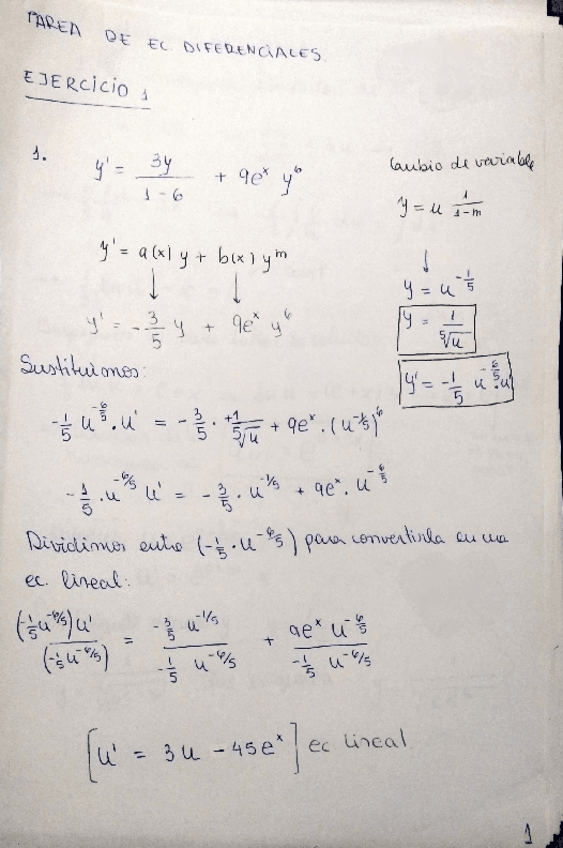 TAREA DE EC DIFERENCIALES.
EJERCICIO 1
1. y' = 3y / (1-6) + 9e^x y^6
Cambio de variable
y = u^(1/(1-m))
y' = a(x) y + b(x) y^m
↓ ↓ ↓
y = u^(-1/5)
y' = -3/5 y + 9e^x y^6
y = 1/⁵√u
Sustituimos:
y' = -1/5 u^(-6/5)·u'
-1/5 u^(-6/5)·u' = -3/5 · +1/⁵√u + 9e^x·(u^(-1/5))^6
-1/5·u^(-6/5) u' = -3/5·u^(-1/5) + 9e^x·u^(-6/5)
Dividimos entre (-1/5·u^(-6/5)) para convertirla en una
ec. lineal:
(-1/5 u^(-6/5))u' / (-1/5 u^(-6/5)) = -3/5 u^(-1/5) / -1/5 u^(-6/5) + 9e^x u^(-6/5) / -1/5 u^(-6/5)
[u' = 3u - 45e^x] ec lineal
1